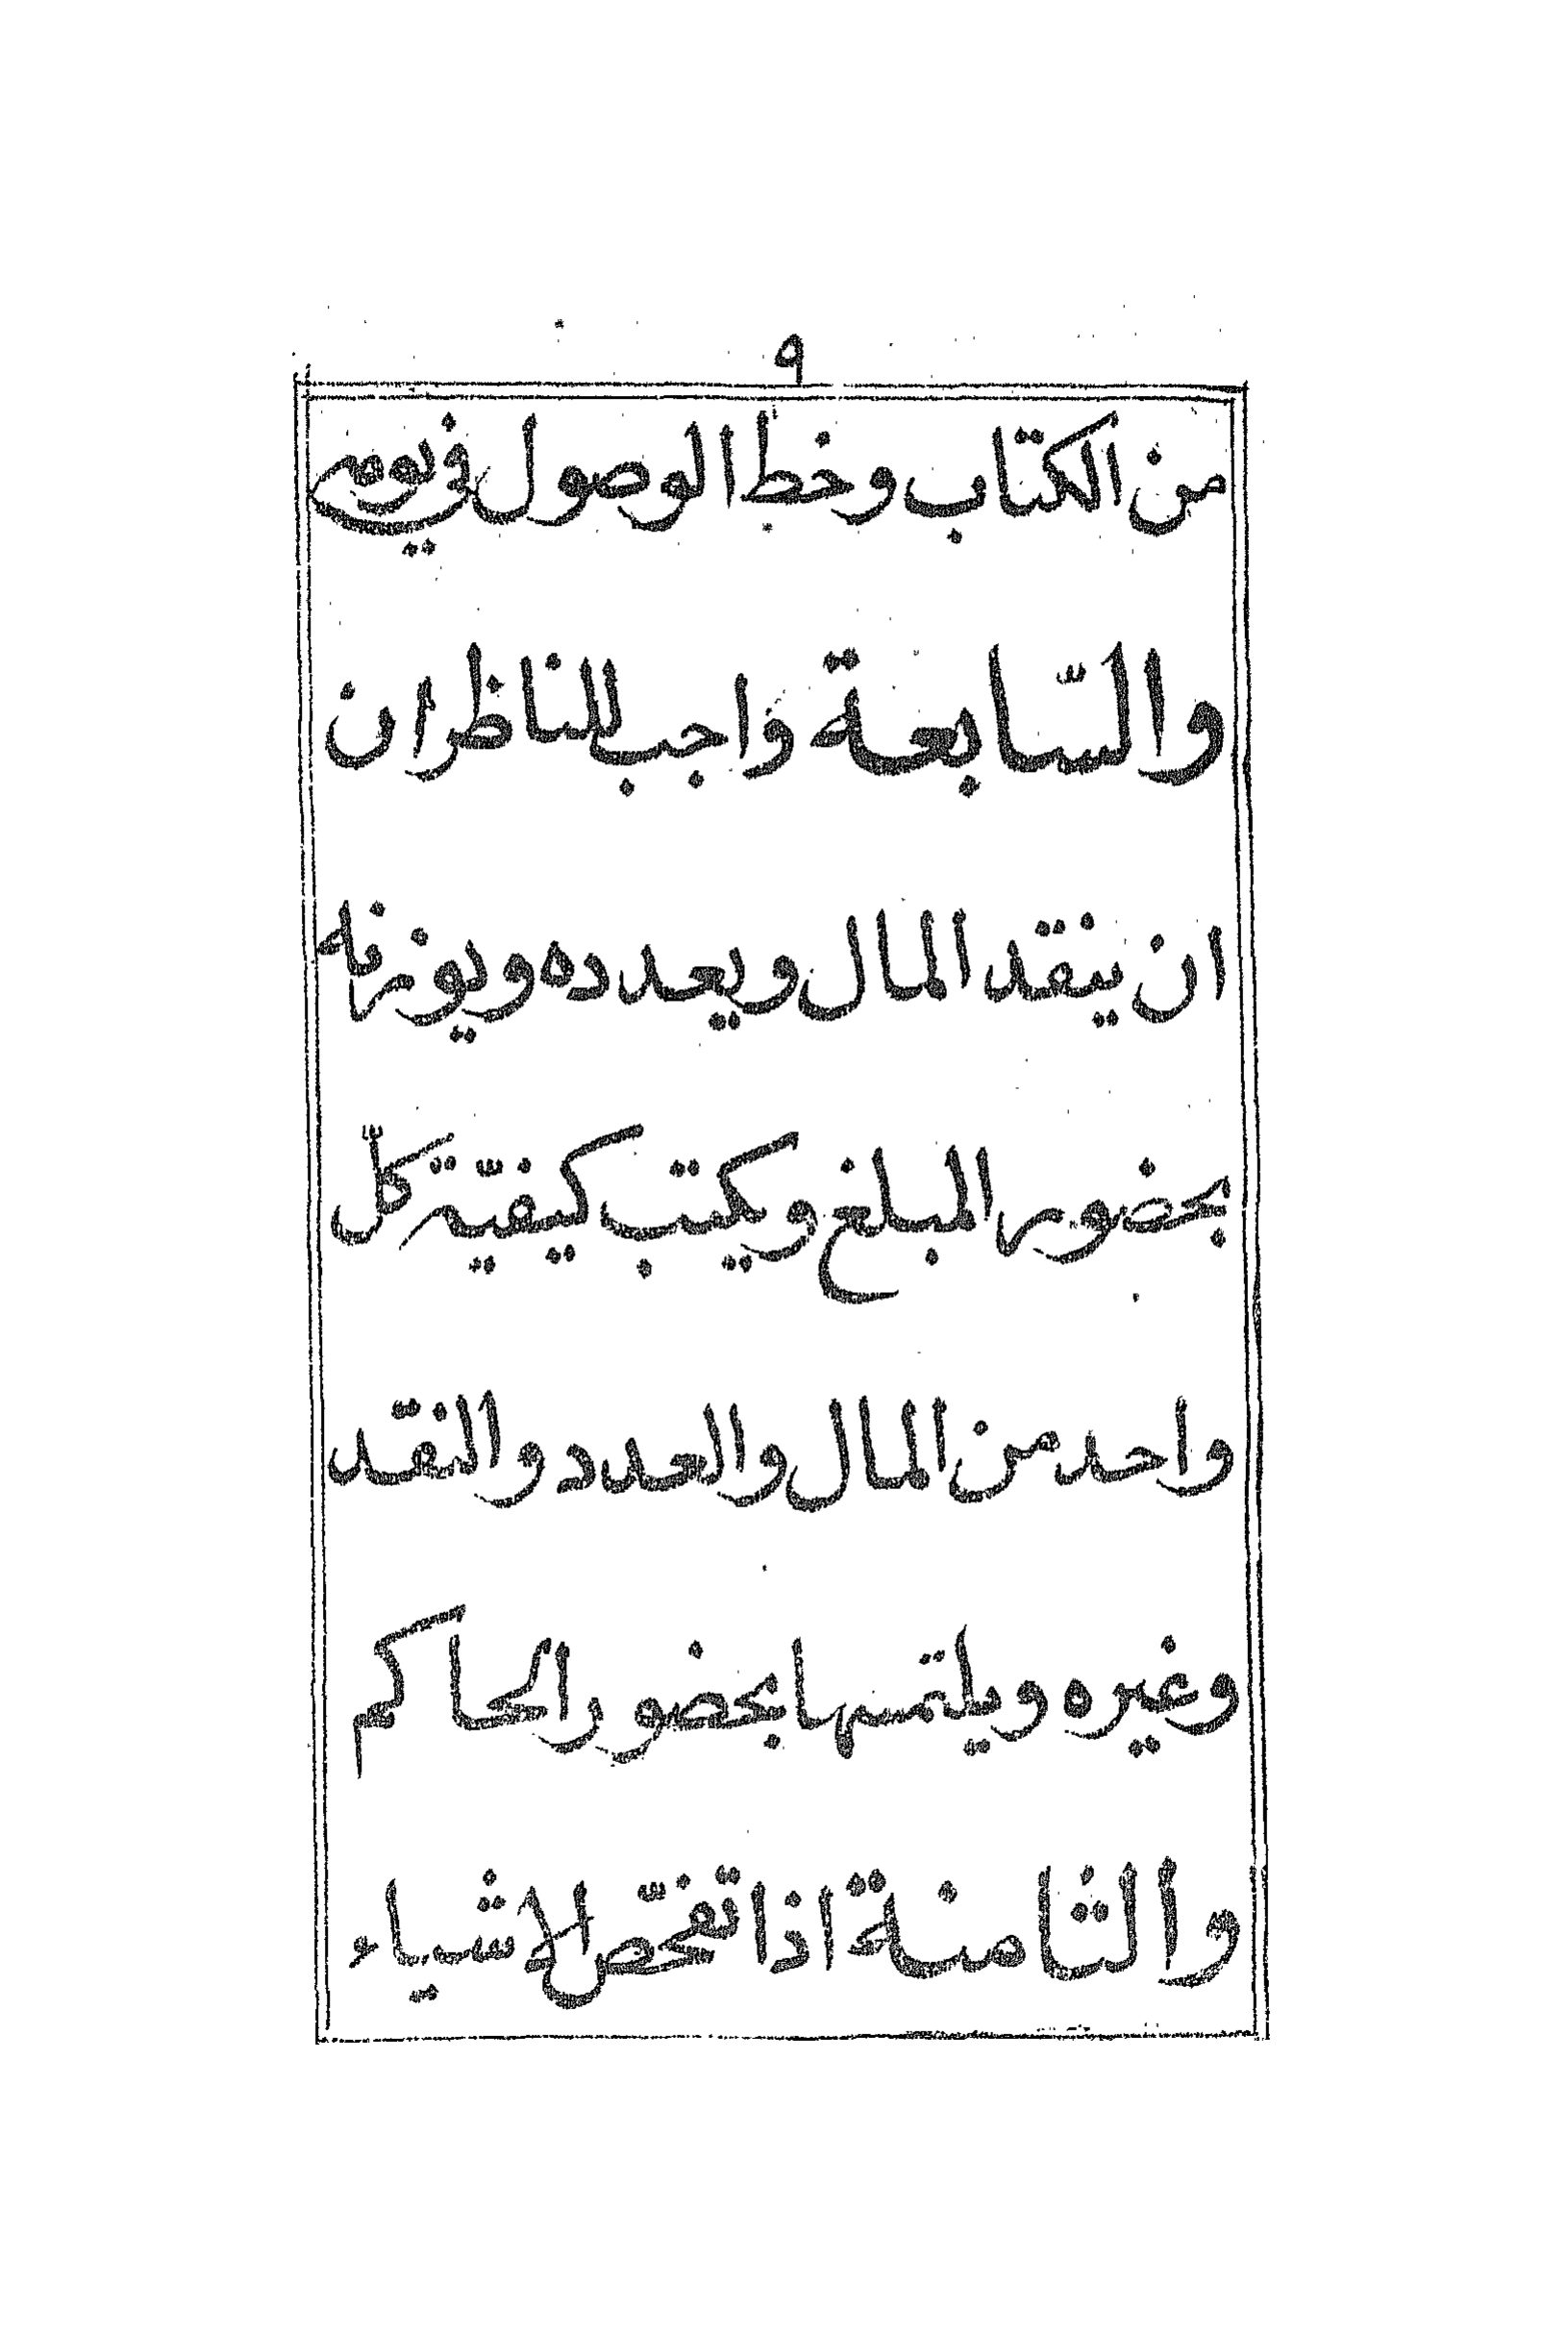 ٩
من الكتاب وخط الوصول في يومه
والسّابعة واجب للناظر ان
ان ينقد المال ويعدده ويوزنه
بحضور المبلغ ويكتب كيفيّة كلّ
واحد من المال والعدد والنقد
وغيره ويلتمسها بحضور الحاكم
والثامنة اذا تفحّص الاشياء